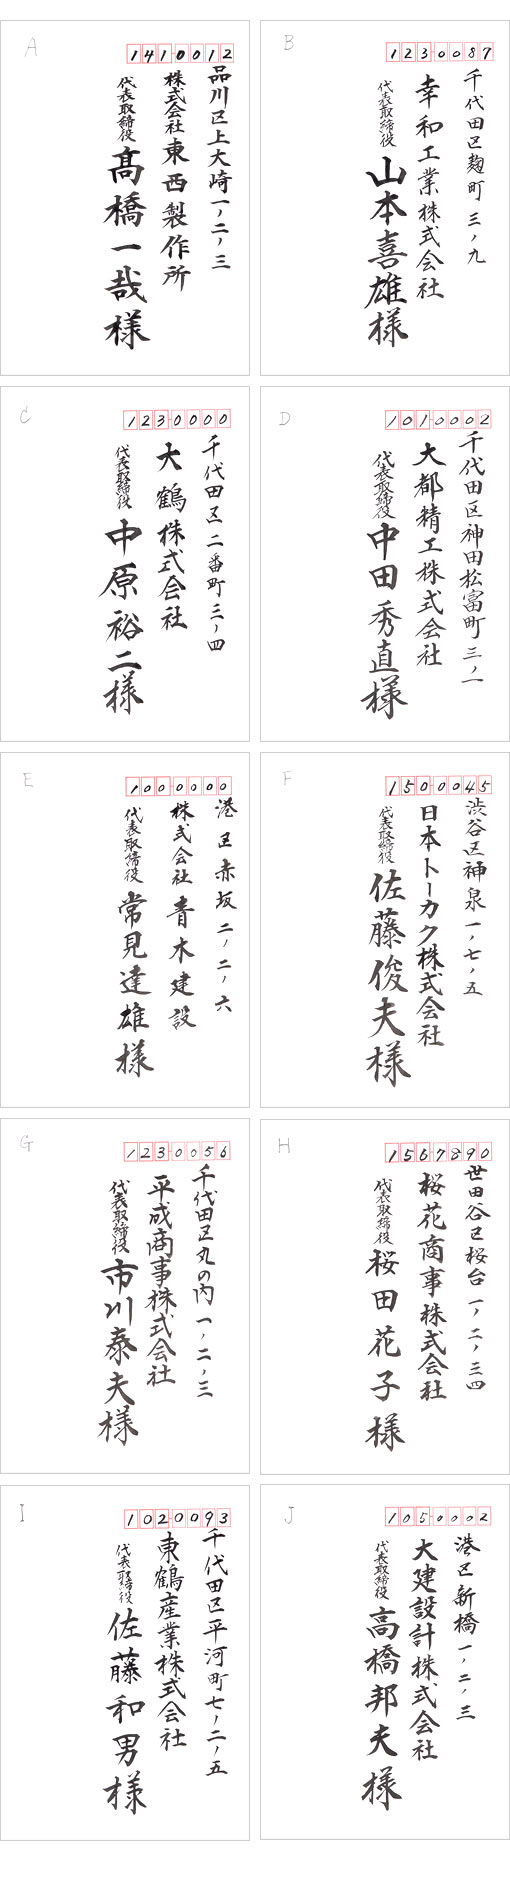 A
1410012
品川区上大崎一ノ二ノ三
株式会社東西製作所
代表取締役
髙橋一哉様
B
1230087
千代田区麹町三ノ九
幸和工業株式会社
代表取締役
山本喜雄様
C
1230000
千代田区二番町三ノ四
大鶴株式会社
代表取締役
中原裕二様
D
1010002
千代田区神田松富町三ノ一
大都精工株式会社
代表取締役
中田秀直様
E
1000000
港区赤坂二ノ二ノ六
株式会社青木建設
代表取締役
常見達雄様
F
1500045
渋谷区神泉一ノ七ノ五
日本トーカク株式会社
代表取締役
佐藤俊夫様
G
1230056
千代田区丸の内一ノ二ノ三
平成商事株式会社
代表取締役
市川泰夫様
H
1567890
世田谷区桜台一ノ二ノ三四
桜花商事株式会社
代表取締役
桜田花子様
I
1020093
千代田区平河町七ノ二ノ五
東鶴産業株式会社
代表取締役
佐藤和男様
J
1050002
港区新橋一ノ二ノ三
大建設計株式会社
代表取締役
高橋邦夫様